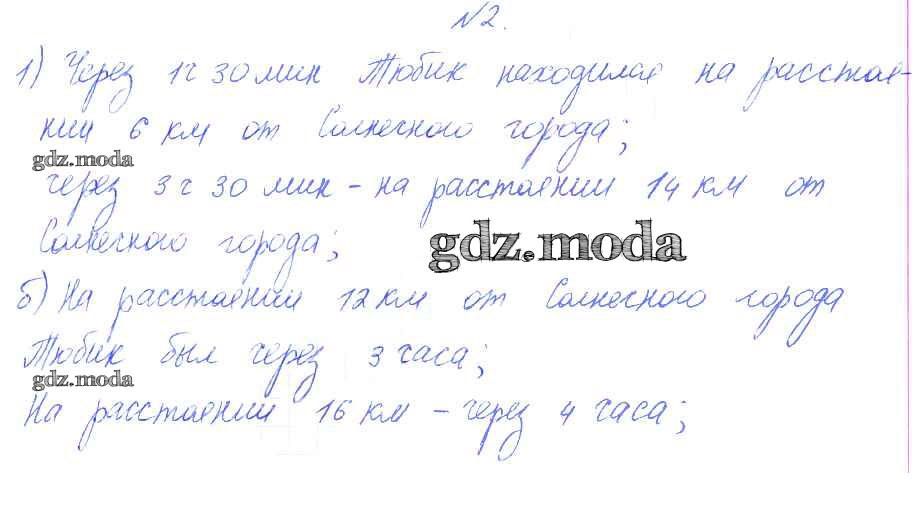 №2.
1) Через 1ч 30 мин Тюбик находился на расстоя-
нии 6 км от Солнечного города;
gdz.moda
через 3ч 30 мин - на расстоянии 14 км от
Солнечного города;
gdz.moda
б) На расстоянии 12 км от Солнечного города
Тюбик был через 3 часа;
gdz.moda
На расстоянии 16 км - через 4 часа;